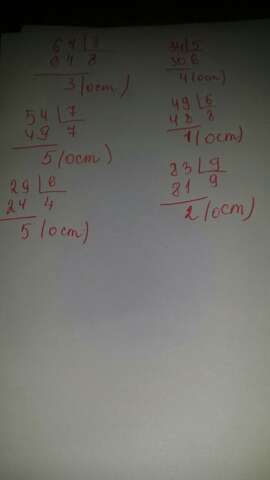 67 8
64 8
3 (ост)
54 7
49 7
5 (ост)
29 6
24 4
5 (ост)
34 5
30 6
4 (ост)
49 6
48 8
1 (ост)
83 9
81 9
2 (ост)